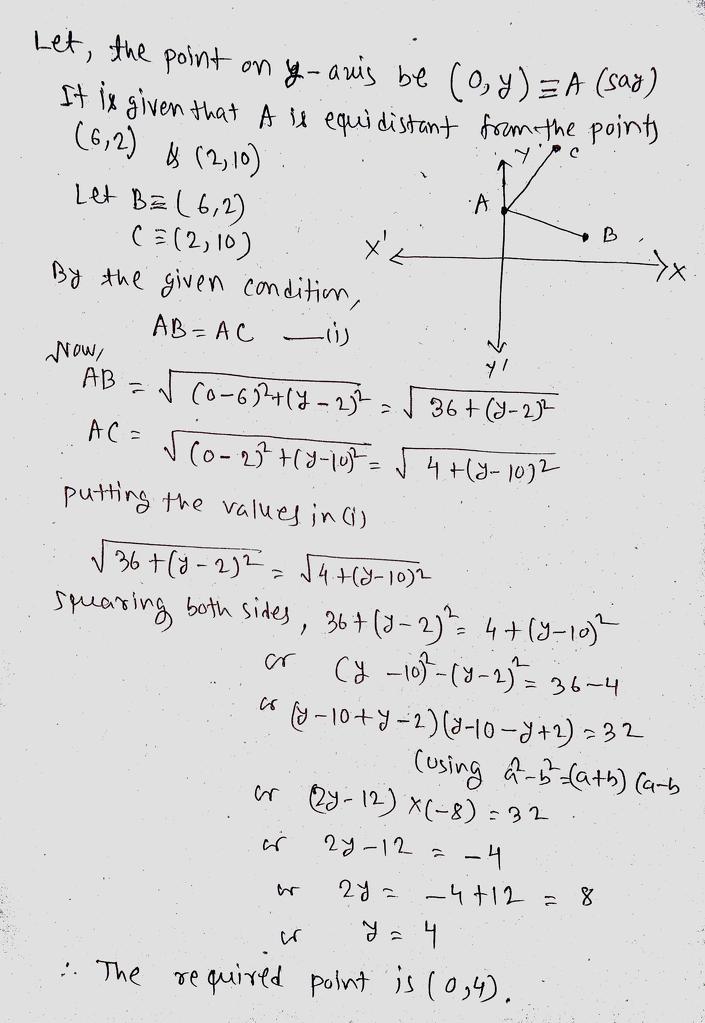 Let, the point on y-axis be (0,y) ≡ A (say)
It is given that A is equidistant from the points
(6,2) & (2,10)
Let B ≡ (6,2)
C ≡ (2,10)
By the given condition,
AB = AC —(i)
Y
C
A
B
X'
X
Y'
Now,
AB = √((0-6)²+(y-2)²) = √(36+(y-2)²)
AC = √((0-2)²+(y-10)²) = √(4+(y-10)²)
putting the values in (i)
√(36+(y-2)²) = √(4+(y-10)²)
Squaring both sides, 36+(y-2)² = 4+(y-10)²
or (y-10)²-(y-2)² = 36-4
or (y-10+y-2)(y-10-y+2) = 32
(using a²-b²=(a+b)(a-b
or (2y-12)×(-8) = 32
or 2y-12 = -4
or 2y = -4+12 = 8
or y = 4
∴ The required point is (0,4).